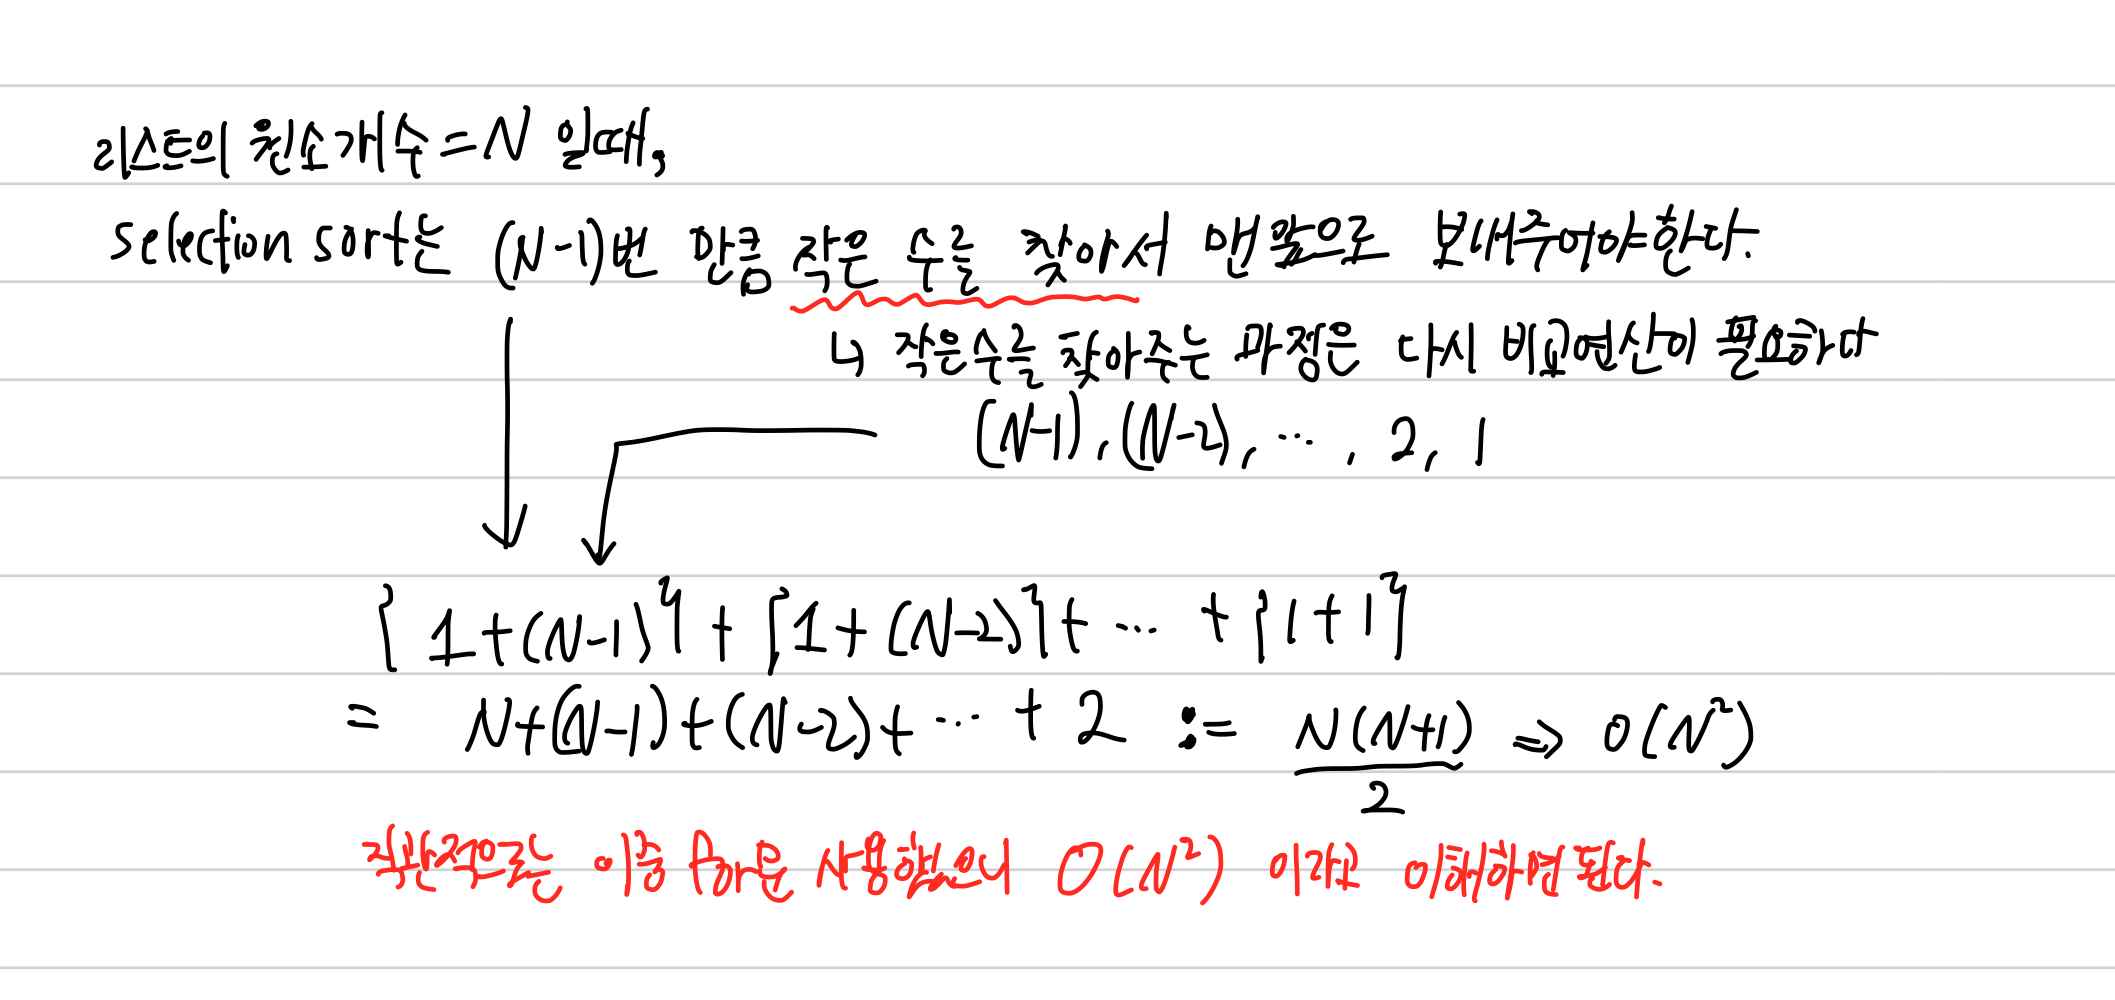 리스트의 원소개수 = N 일때,
selection sort는 (N-1)번 만큼 작은 수를 찾아서 맨앞으로 보내주어야한다.
↳ 작은수를 찾아주는 과정은 다시 비교연산이 필요하다
(N-1), (N-2), ... , 2, 1
{1+(N-1)} + {1+(N-2)} + ... + {1+1}
= N+(N-1)+(N-2)+ ... + 2 := N(N+1)/2 ⇒ O(N²)
직관적으로는 이중 for문 사용했으니 O(N²) 이라고 이해하면된다.